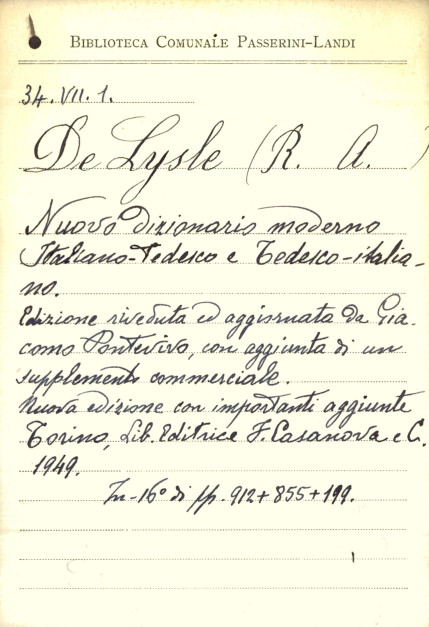 BIBLIOTECA COMUNALE PASSERINI-LANDI
34. VII. 1.
De Lysle (R. A.)
Nuovo dizionario moderno
Italiano-Tedesco e Tedesco-italia-
no.
Edizione riveduta ed aggiornata da Gia-
como Pontevivo, con aggiunta di un
supplemento commerciale.
Nuova edizione con importanti aggiunte
Torino, Lib. Editrice F. Casanova e C.
1949.
In-16° di pp. 912+855+199.